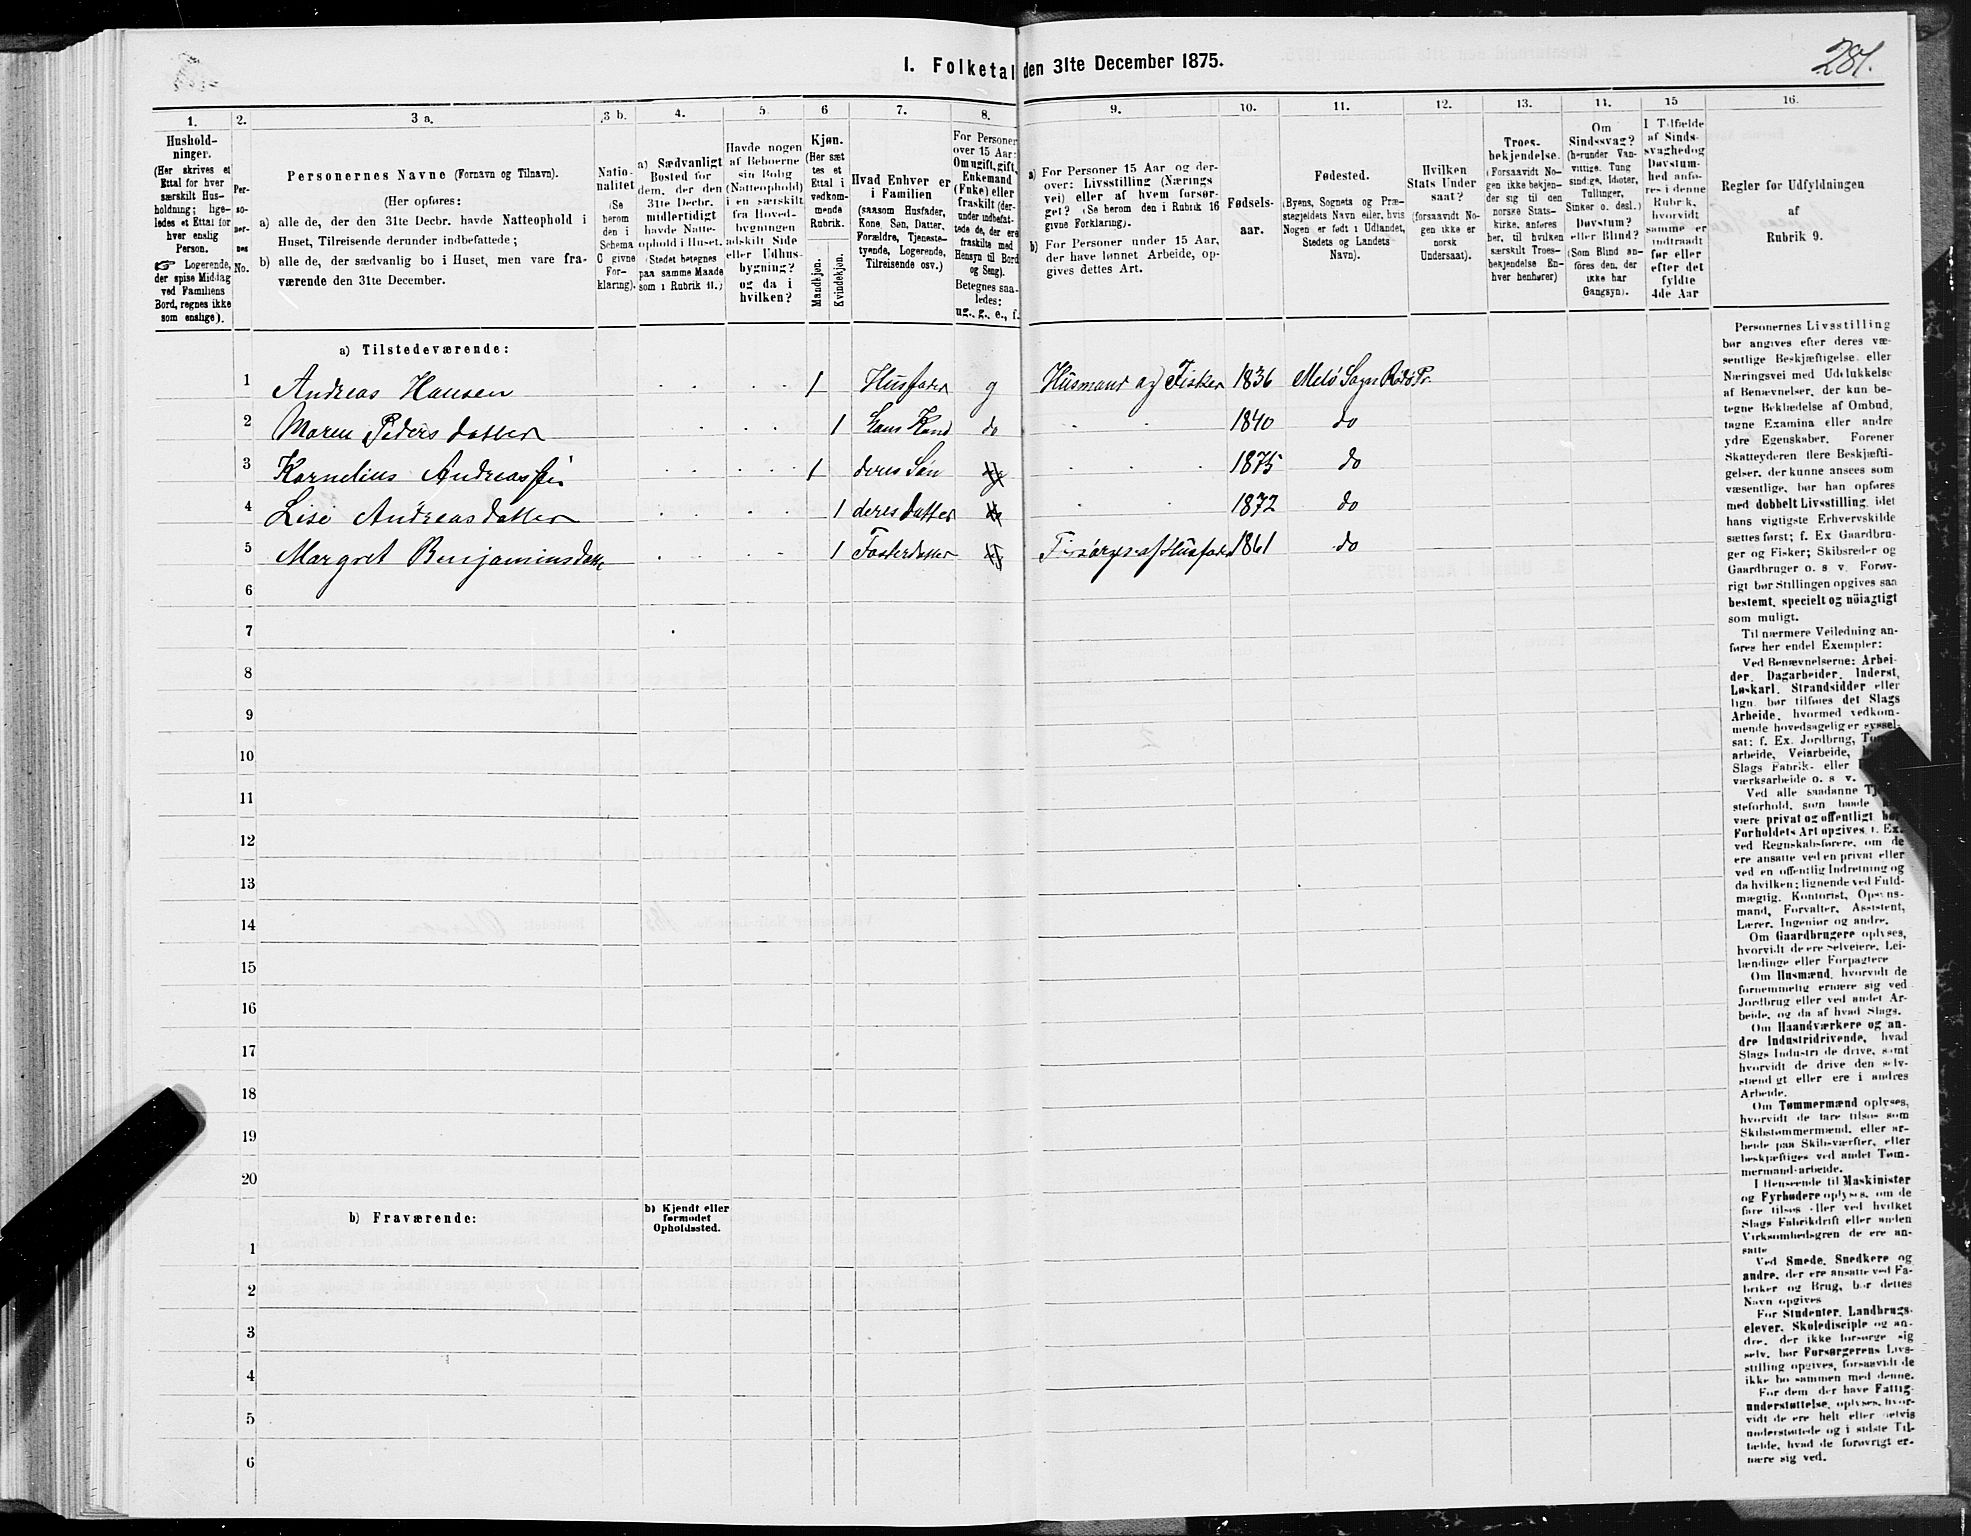 I. Folketal den 31te December 1875.
281.
1. 2. 3 a. 3 b. 4. 5. 6 7. 8. 9. 10. 11. 12. 13. 14. 15 16.
Hushold-
ninger.
(Her skrives et
Ettal for hver
særskilt Hus-
holdning; lige-
ledes et Ettal for
hver enslig
Person.
☞ Logerende,
der spise Middag
ved Familiens
Bord, regnes ikke
som enslige).
Per-
so-
ner-
nes
No.
Personernes Navne (Fornavn og Tilnavn).
(Her opføres:
a) alle de, der den 31te Decbr. havde Natteophold i
Huset, Tilreisende derunder indbefattede;
b) alle de, der sædvanlig bo i Huset, men vare fra-
værende den 31te December.
Natio-
nalitet
(Se
herom
den i
Schema
C givne
For-
klaring).
a) Sædvanligt
Bosted for
dem, der den
31te Decbr.
midlertidigt
havde Natte-
ophold i Huset.
(Stedet betegnes
paa samme Maade
som i Rubrik 11.)
Havde nogen
af Beboerne
sin Bolig
(Natteophold)
i en særskilt
fra Hoved-
bygningen
adskilt Side
eller Udhus-
bygning?
og da i
hvilken?
Kjøn.
(Her sæt
tes et
Ettal i
vedkom-
mende
Rubrik.
Mandkjøn.
Kvindekjøn.
Hvad Enhver er
i Familien
(saasom Husfader,
Kone, Søn, Datter,
Forældre, Tjeneste-
tyende, Logerende,
Tilreisende osv.)
For Personer
over 15 Aar:
Om ugift, gift,
Enkemand
(Enke) eller
fraskilt (der-
under indbefat-
tede de, der ere
fraskilte med
Hensyn til Bord
og Seng).
Betegnes saa-
ledes:
ug., g., e., f.
a) For Personer 15 Aar og der-
over: Livsstilling (Nærings
vei) eller af hvem forsør-
get? (Se herom den i Rubrik 16
givne Forklaring).
b) For Personer under 15 Aar,
der have lønnet Arbeide, op-
gives dettes Art.
Fødsels-
aar.
Fødested.
(Byens, Sognets og Præ-
stegjeldets Navn eller, hvis
Nogen er født i Udlandet,
Stedets og Landets
Navn).
Hvilken
Stats Under
saat?
(forsaavidt No-
gen ikke er
norsk
Undersaat).
Troes-
bekjendelse.
(Forsaavidt No-
gen ikke bekjen-
der sig til den
norske Stats-
kirke, anføres
her, til hvilken
særskilt Troes-
bekjendelse En-
hver henhører)
Om
Sindssvag?
(herunder Van-
vittige, Tung
sindige, Idioter,
Tullinger,
Sinker o. desl.)
Døvstum?
eller Blind?
(Som Blind an-
føres den, der
ikke har
Gangsyn).
I Tilfælde
af Sinds-
svaghed og
Døvstum-
hed anfø-
res i denne
Rubrik,
hvorvidt
samme er
indtraadt
før eller
efter det
fyldte
4de Aar
Regler for Udfyldningen
af
Rubrik 9.
a) Tilstedeværende:
1 Andreas Hansen 1 Husfader g Husmand og Fisker 1836 Melø Sogn Rødø Pr.
2 Maren Pedersdatter 1 Hans Kone do 1840 do
3 Kornelius 1 deres Søn 1875 do
4 Lise Andreasdatter 1 deres datter 1872 do
5 Margret Benjaminsdatter 1 Fosterdatter af Husfader 1861 do
6
7
8
9
10
11
12
13
14
15
16
17
18
19
20
b) Fraværende:
b) Kjendt eller
formodet
Opholdssted.
1
2
3
4
5
6
Personernes Livsstilling
bør angives efter deres væ-
sentlige Beskjæftigelse eller
Næringsvei med Udelukkelse
af Benævnelser, der kun be-
tegne Beklædelse af Ombud,
tagne Examina eller andre
ydre Egenskaber. Forener
Skatteyderen flere Beskjæfti-
gelser, der kunne ansees som
væsentlige, bør han opføres
med dobbelt Livsstilling, idet
hans vigtigste Erhvervskilde
sættes først; f. Ex Gaardbru-
ger og Fisker; Skibsreder og
Gaardbruger o. s v. Forøv-
rigt bør Stillingen opgives saa
bestemt, specielt og nöiagtigt
som muligt.
Til nærmere Veiledning an-
føres her endel Exempler:
Ved Benævnelserne: Arbei-
der, Dagarbeider, Inderst,
Løskarl, Strandsidder eller
lign. bør tilføies det Slags
Arbeide, hvormed vedkom-
mende hovedsagelig er syssel-
sat; f. Ex. Jordbrug,
arbeide, Veiarbeide,
Slags Fabrik- eller
værksarbeide o. s v.
Ved alle saadanne
steforhold, som baade
være privat og offentligt, bør
Forholdets Art opgives, f. Ex.
ved Regnskabsførere, om de
ere ansatte ved en privat eller
ved en offentlig Indretning og
da hvilken; lignende ved Fuld-
mægtig, Kontorist, Opsyns-
mand, Forvalter, Assistent,
Lærer, Ingeniør og andre.
Om Gaardbrugere oplyses,
hvorvidt de ere Selveiere, Lei-
lændinge eller Forpagtere
Om Husmænd, hvorvidt de
fornemmelig ernære sig ved
Jordbrug eller ved andet Ar-
beide, og da af hvad Slags.
Om Haandværkere og an-
dre Industridrivende, hvad
Slags Industri de drive, samt
hvorvidt de drive den selv-
stændigt eller ere i andres
Arbeide.
Om Tømmermænd oplyses,
hvorvidt de fare tilsøs som
Skibstømmermænd, eller ar-
beide paa Skibsværfter, eller
beskjæftiges ved andet Tøm-
mermandsarbeide.
I Henseende til Maskinister
og Fyrbødere oplyses, om de
fare tilsøs eller ved hvilket
Slags Fabrikdrift eller anden
Virksomhedsgren de ere an-
satte
Ved Smede, Snedkere og
andre, der ere ansatte ved Fa-
briker og Brug, bør dettes
Navn opgives
For Studenter, Landbrugs-
elever, Skoledisciple og an-
dre, der ikke forsørge sig
selv, bør Forsørgerens Livs-
stilling opgives, forsaavidt de
ikke bo sammen med denne.
For dem, der have Fattig-
understøttelse, oplyses, hvor-
vidt de ere helt eller delvis
understøttede og i sidste Til-
fælde, hvad de forøvrigt er-
nære sig ved.